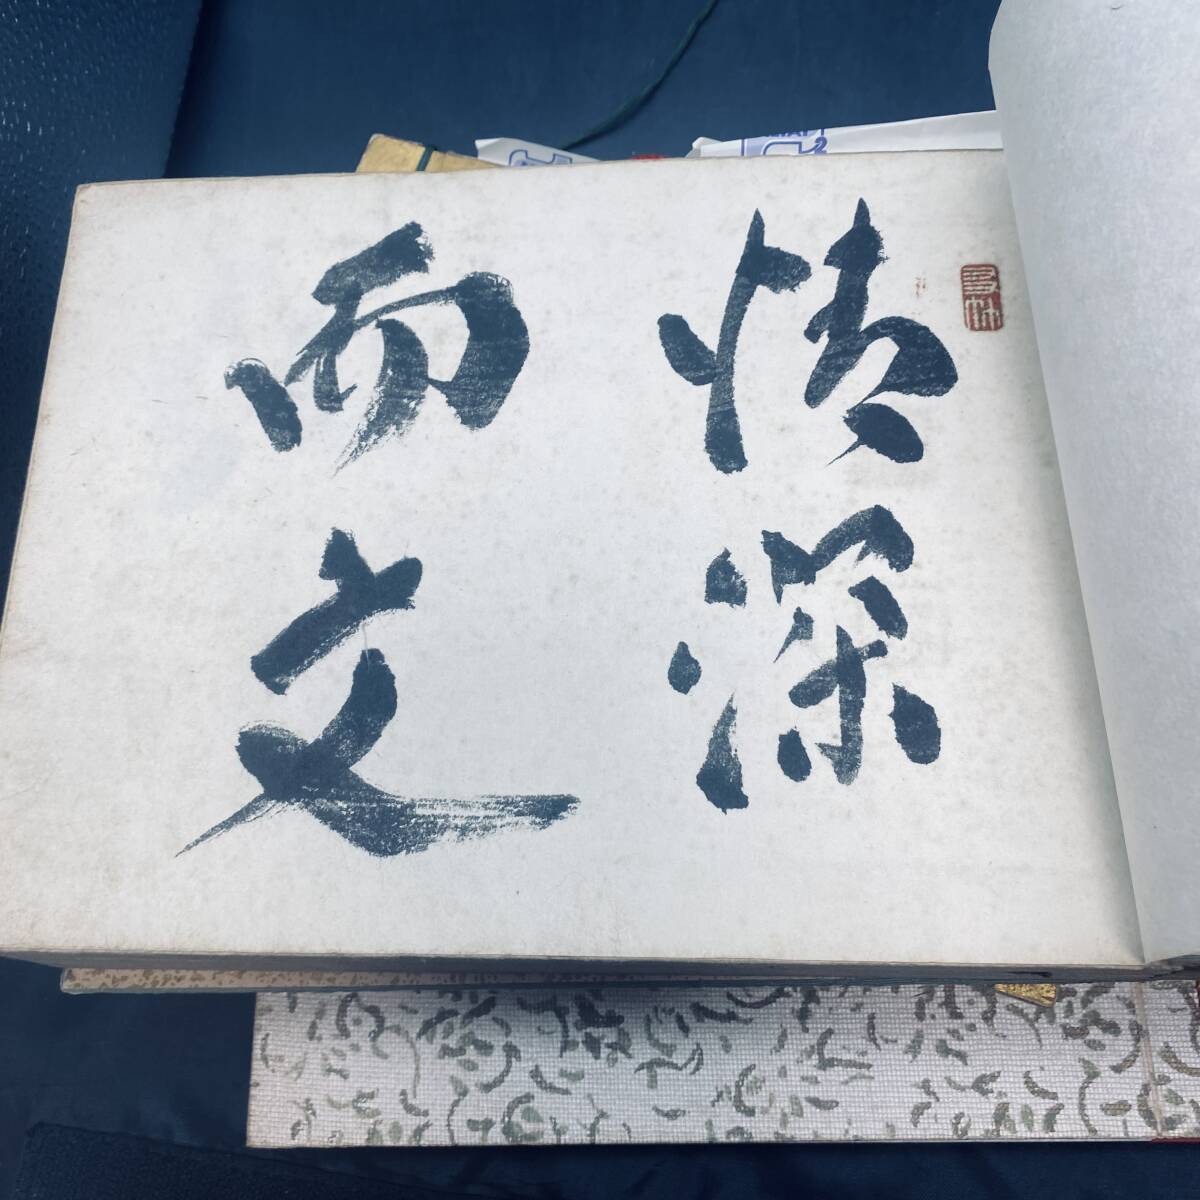 情深
而文